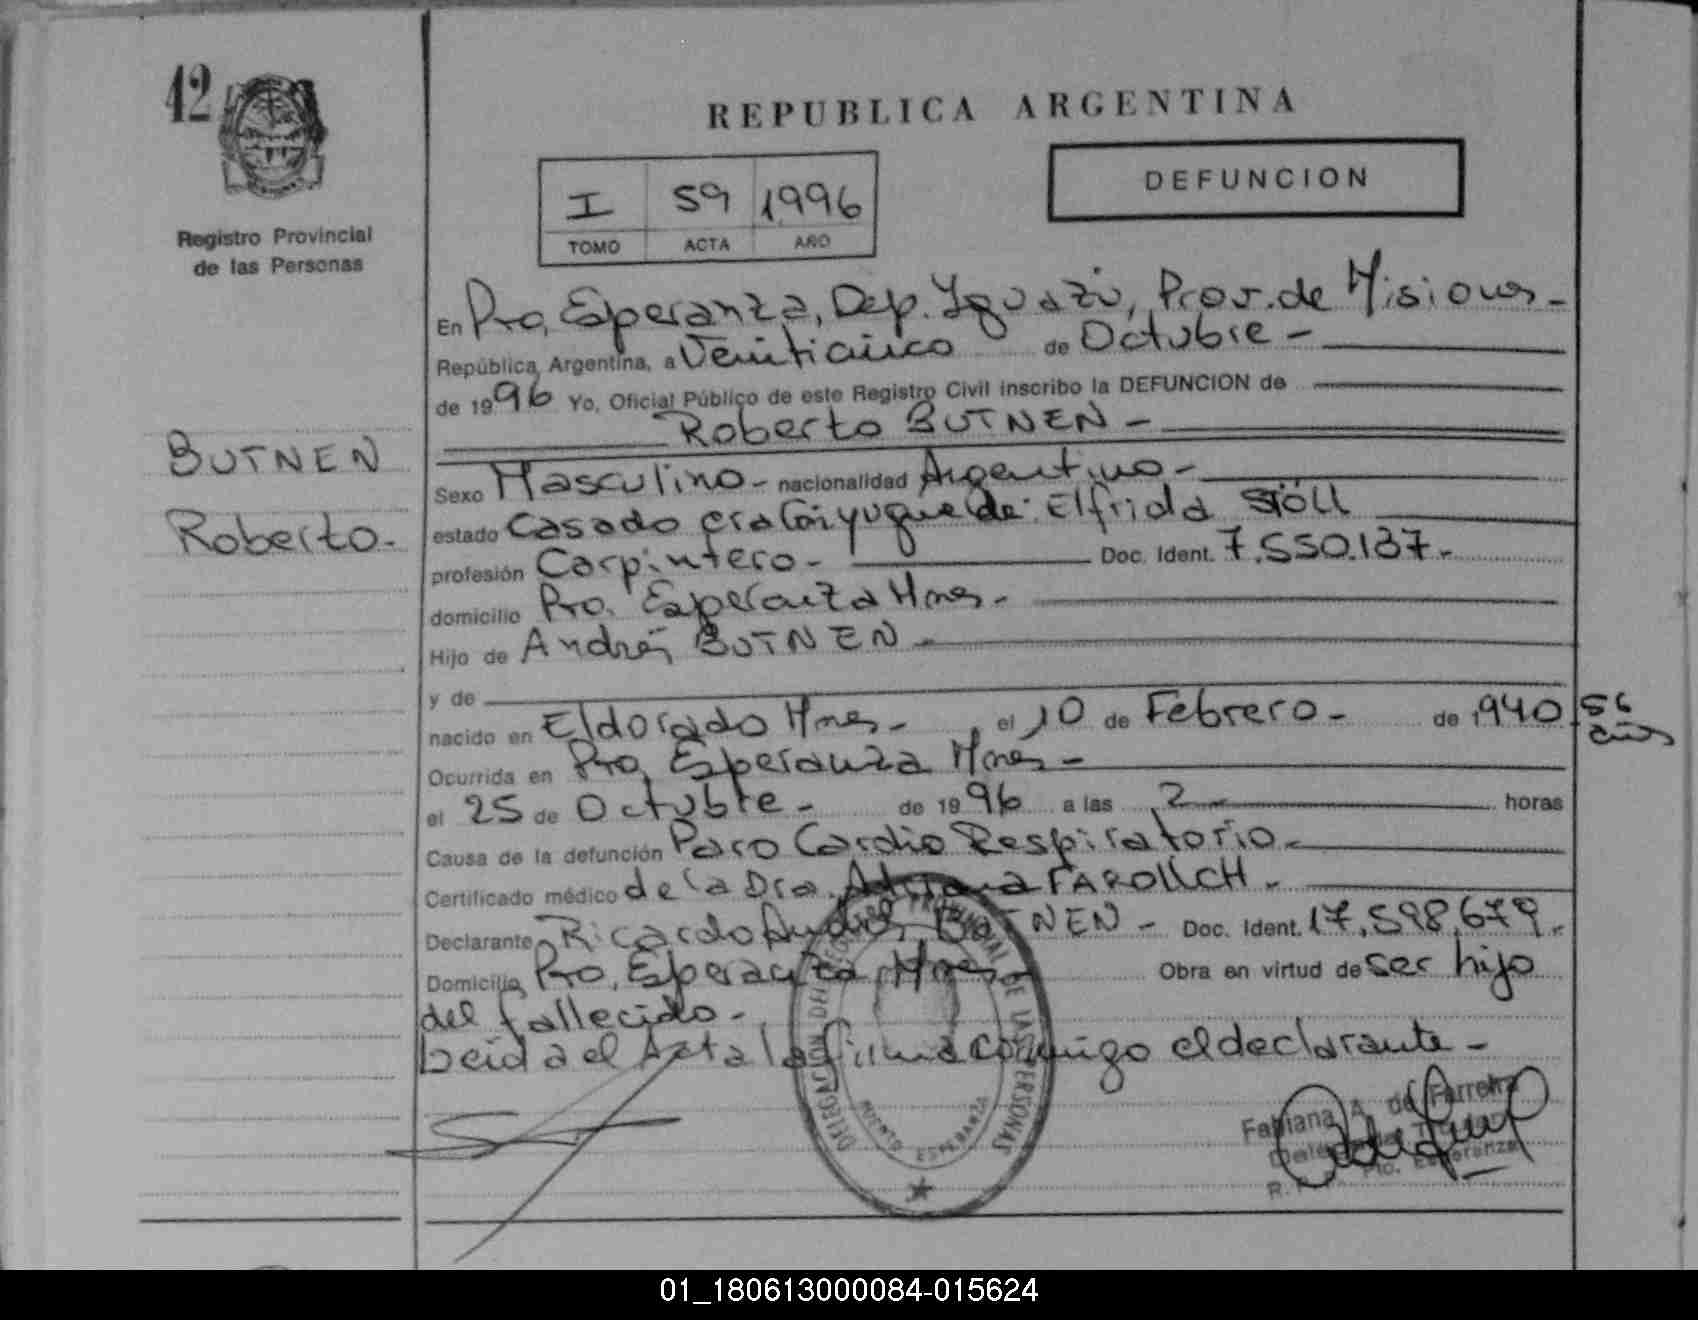 12
Registro Provincial
de las Personas
REPUBLICA ARGENTINA
DEFUNCION
I 59 1996
TOMO ACTA AÑO
En Pto, Esperanza, Dep. Yguazú, Prov. de Misiones -
República Argentina, a Veinticinco de Octubre -
de 1996 Yo, Oficial Público de este Registro Civil inscribo la DEFUNCION de
Roberto BUTNEN -
BUTNEN
Roberto.-
Sexo Masculino - nacionalidad Argentino -
estado Casado era Cónyugue de: Elfrida STÖLL
profesión Carpintero - Doc. Ident. 7.550.137-
domicilio Pto. Esperanza Mnes -
Hijo de Andrés BUTNEN -
y de
nacido en Eldorado Mnes - el 10 de Febrero - de 1940 56
años
Ocurrida en Pto, Esperanza Mnes -
el 25 de Octubre - de 1996 a las 2 - horas
Causa de la defunción Paro Cardio Respiratorio -
Certificado médico de la Dra. Adriana FAROLICH -
Declarante Ricardo Andrés BUTNEN - Doc. Ident. 17,598,679.-
Domicilio Pto, Esperanza Mnes - Obra en virtud de ser hijo
del fallecido -
Leida el Acta la firma conmigo el declarante -
DELEGACION DEL REGISTRO PROVINCIAL DE LAS PERSONAS
PUERTO ESPERANZA
Fabiana A. de Ferreira
Pto. Esperanza
01_180613000084-015624